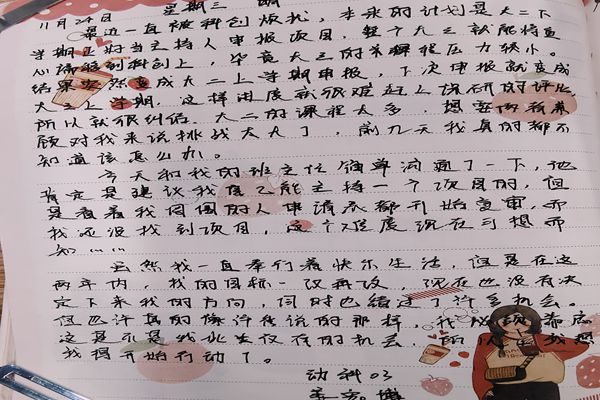 11月24日 星期三 晴
最近一直被科创烦扰,本来的计划是大二下
学期正好当主持人申报项目,整个大三就能将重
心偏移到科创上,毕竟大三的课程压力较小。
结果突然变成大二上学期申报,下次申报就变成
大三上学期,这样进度就很难赶上保研的评比,
所以就很纠结。大二的课程太多,想要两者兼
顾对我来说挑战太大了,前几天我真的都不
知道该怎么办。
今天和我的班主任简单沟通了一下,他
肯定是建议我尽可能主持一个项目的,但
是看着我周围的人申请表都开始复审,而
我还没找到项目,这个难度就在可想而
知……
虽然我一直奉行着快乐生活,但是在这
两年内,我的目标一改再改,现在也没有决
定下来我的方向,同时也错过了许多机会。
但也许真的像许 说的那样,我必须
这是不是我此生仅有的机会,所以
我得开始行动了。
动科03